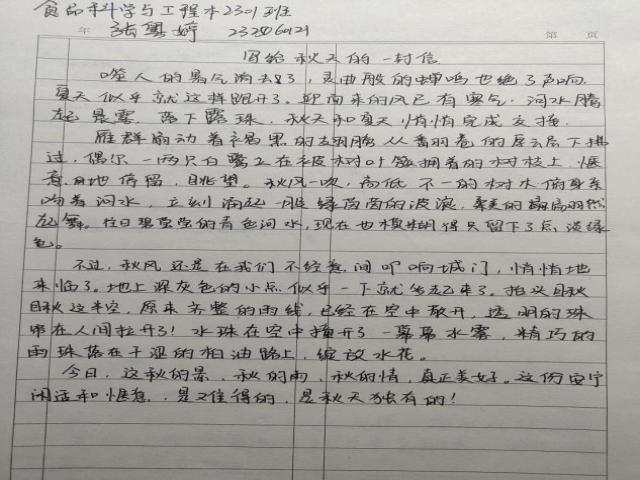 食品科学与工程本2301班
年 张粤婷 232806021 第 页
写给秋天的一封信
噬人的暑气消去了，哀曲般的蝉鸣也绝了声响，
夏天似乎就这样跑开了。迎面来的风已有寒气，河水腾
起晨雾，落下露珠，秋天和夏天悄悄完成交接。
雁群扇动着褐黑的翅膀从番羽卷的厚云层下拂
过，偶尔一两只白鹭立在被树叶簇拥着的树枝上，惬
意地停留，眺望。秋风一吹，高低不一的树木俯身亲
吻着河水，立刻涌起一股绿茵茵的波浪，
起舞。往日碧莹莹的青色河水，现在也模糊得只留下了点淡绿
色。
不过，秋风还是在我们不经意间叩响城门，悄悄地
来临了。地上深灰色的小点似乎一下就多起来了。抬头目秋
目秋这半空，原来齐整的雨线，已经在空中散开，透明的珠
帘在人间拉开了！水珠在空中撞开了一幕幕水雾，精巧的
雨珠落在干涩的柏油路上，绽放水花。
今日，这秋的景，秋的雨，秋的情，真正美好。这份安宁
闲适和惬意，是难得的，是秋天独有的！